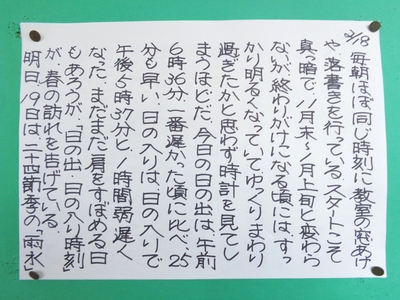 2/18 毎朝ほぼ同じ時刻に教室の窓あけ
や落書きを行っている。スタートこそ
真っ暗で、11月末〜1月上旬と変わら
ないが終わりがけになる頃には、すっ
かり明るくなっていてゆっくりまわり
過ぎたかと思わず時計を見てし
まうほどだ。今日の日の出は、午前
6時36分。一番遅かった頃に比べ、25
分も早い。日の入りは、日の入りで
午後5時37分と、1時間弱遅く
なった。まだまだ肩をすぼめる日
もあろうが、「日の出・日の入り時刻」
が、春の訪れを告げている。
明日、19日は、二十四節季の「雨水」